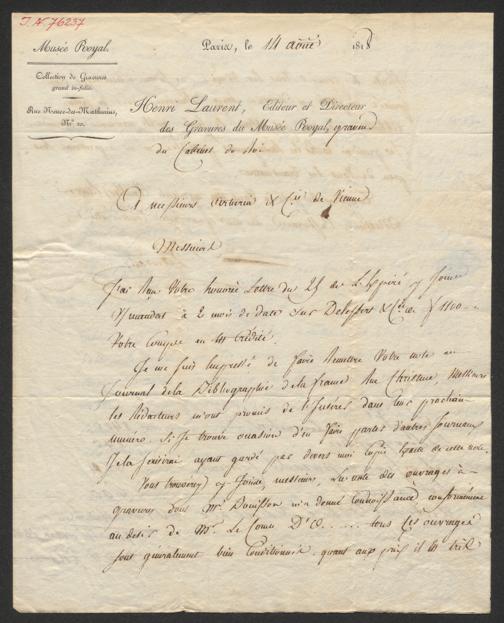 I.N. 76237
Musée Royal.
Collection de Gravures
grand in-folio.
Rue Neuve-des-Mathurins,
N.º 20.
Paris, le 14 août 1818
Henri Laurent, Editeur et Directeur
des Gravures du Musée Royal, graveur
du Cabinet du Roi
A Messieurs Artaria & C.ie de Vienne
Messieurs
J'ai reçu Votre honorée Lettre du 25 de
à 2 mois de date sur Delessert & C.ie de f 1100
Votre Compte en est Crédité.
Je me suis Empressé de faire remettre Votre note au
Journal de la Bibliographie de la france
les Rédacteurs m'ont promis de l'insérer dans leur prochain
numéro. Si je trouve occasion d'en faire parler d'autres Journaux
Je la saisirai ayant gardé par devers moi copie de cette note.
Vous trouverez cy Joint, messieurs, La note des ouvrages à
gravures dont M.r m'a donné connoissance conformément
au desir de M.r Le Comte D'O..... tous Ces ouvrages
sont généralement bien Conditionnés. quant aux prix il